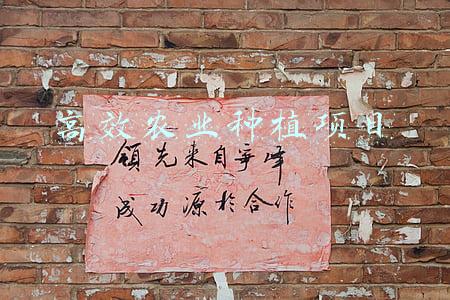 高效农业种植项目
领先来自争峰
成功源于合作